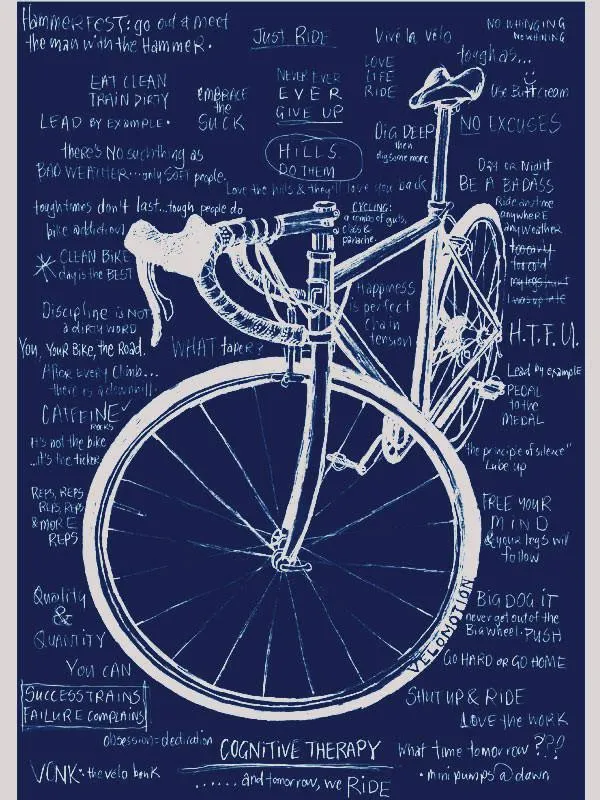 HAMMERFEST: go out & meet
the man with the HAMMER.
JUST RIDE
Vive la vélo
NO WHINGING
tough as...
EAT CLEAN
TRAIN DIRTY
EMBRACE
the
SUCK
NEVER EVER
EVER
GIVE UP
LOVE
LIFE
RIDE
Use Butt cream
LEAD BY EXAMPLE.
DIG DEEP
then
dig some more
NO EXCUSES
there's NO such thing as
BAD WEATHER...only SOFT people.
HILLS.
DO THEM
Love the hills & they'll love you back
Day or Night
BE A BADASS
Ride anytime
anywhere
any weather
tough times don't last...tough people do
bike addiction
CYCLING:
guts,
class &
panache.
too early
too cold
my legs hurt
CLEAN BIKE
day is the BEST
Happiness
is perfect
chain
tension
Discipline is NOT
a DIRTY WORD
H.T.F.U.
You, Your Bike, the Road.
WHAT taper?
After Every Climb...
there is a downhill.
Lead By example
PEDAL
to the
MEDAL
CAFFEINE
ROCKS
it's not the bike
...it's the ticker
the principle of silence"
"Lube up
REPS, REPS
REPS, REPS
& MORE
REPS
FREE YOUR
MIND
& your legs will
follow
Quality
&
QUANTITY
BIG DOG IT
never get out of the
Big wheel. PUSH
VELOMOTION
GO HARD or GO HOME
YOU CAN
SUCCESS TRAINS
FAILURE COMPLAINS
SHUT UP & RIDE
LOVE the WORK
obsession = dedication
COGNITIVE THERAPY
what time tomorrow ???
VONK: the velo bonk
......and tomorrow, we RIDE
• mini pumps @ dawn